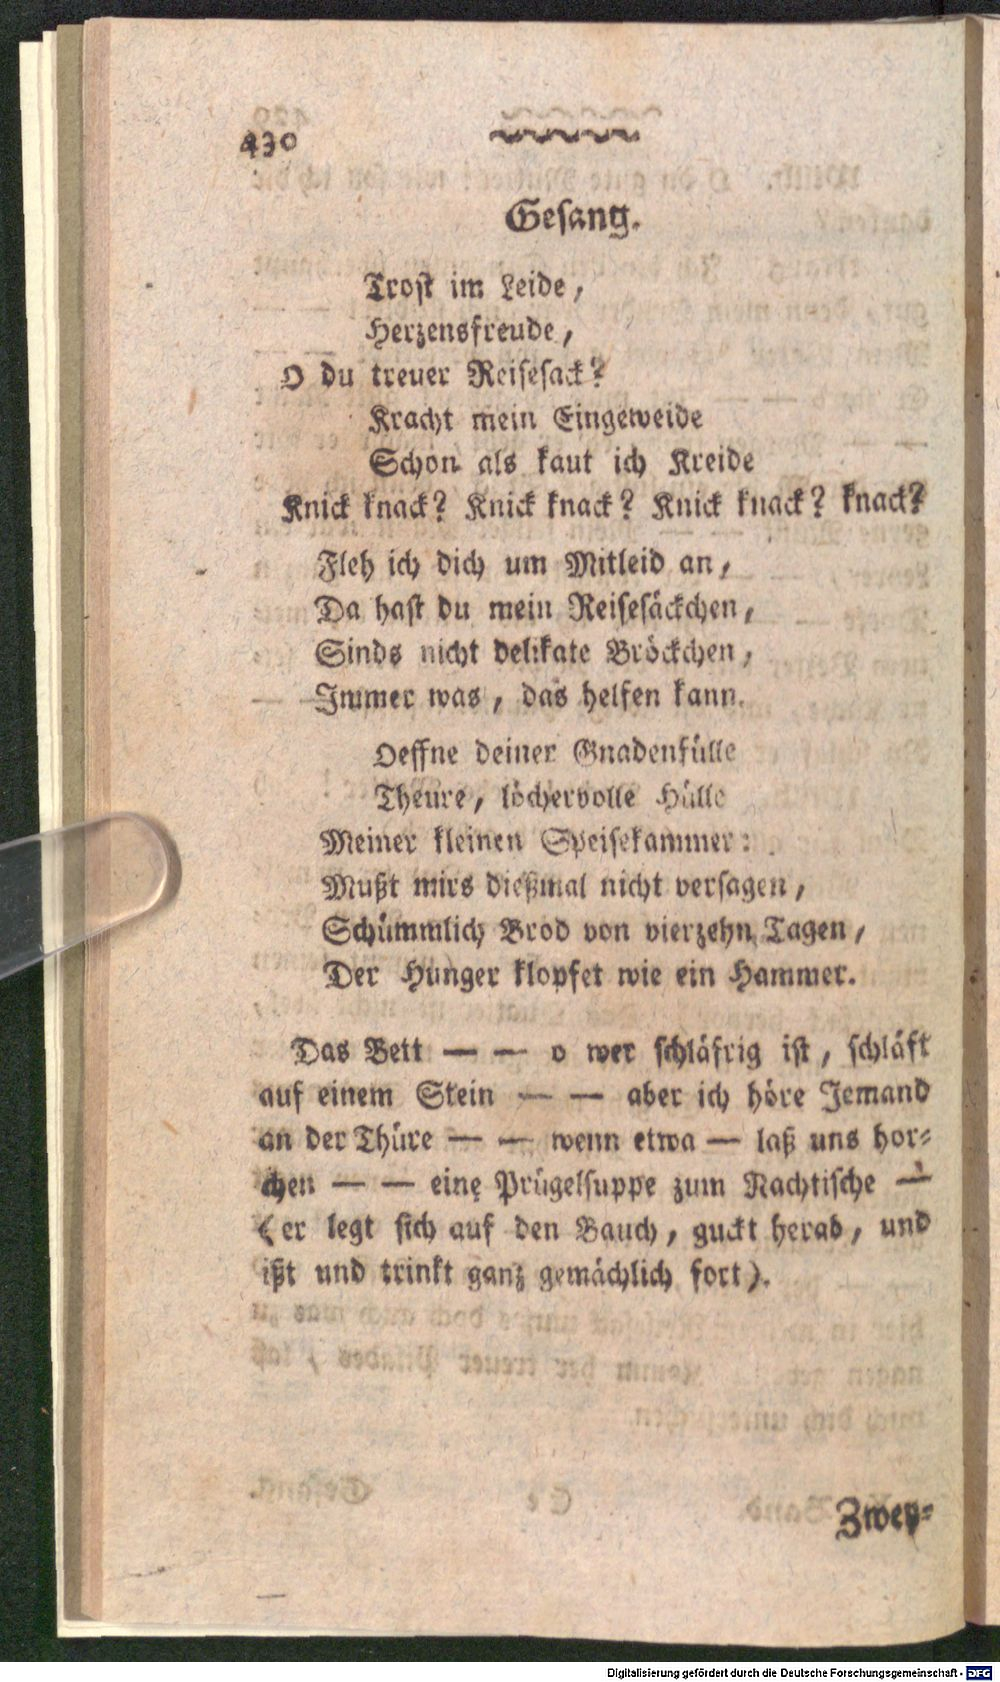 430
Gesang.
Trost im Leide,
Herzensfreude,
O du treuer Reisesack?
Kracht mein Eingeweide
Schon als kaut ich Kreide
Knick knack? Knick knack? Knick knack? knack?
Fleh ich dich um Mitleid an,
Da hast du mein Reisesäckchen,
Sinds nicht delikate Bröckchen,
Immer was, das helfen kann.
Oeffne deiner Gnadenfülle
Theure, löchervolle Hülle
Meiner kleinen Speisekammer:
Mußt mirs dießmal nicht versagen,
Schümmlich Brod von vierzehn Tagen,
Der Hunger klopfet wie ein Hammer.
Das Bett — — o wer schläfrig ist, schläft
auf einem Stein — — aber ich höre Jemand
an der Thüre — — wenn etwa — laß uns hor-
chen — — eine Prügelsuppe zum Nachtische —
(er legt sich auf den Bauch, guckt herab, und
ißt und trinkt ganz gemächlich fort).
Zwey-
Digitalisierung gefördert durch die Deutsche Forschungsgemeinschaft - DFG